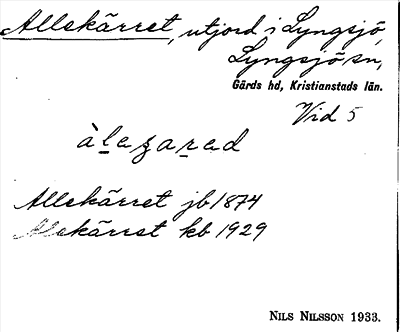 Allskärret, utjord i Lyngsjö,
Lyngsjö sn,
Gärds hd, Kristianstads län.
Vid 5
àlasarad
Allskärret jb 1874
Alskärret kb 1929
NILS NILSSON 1933.